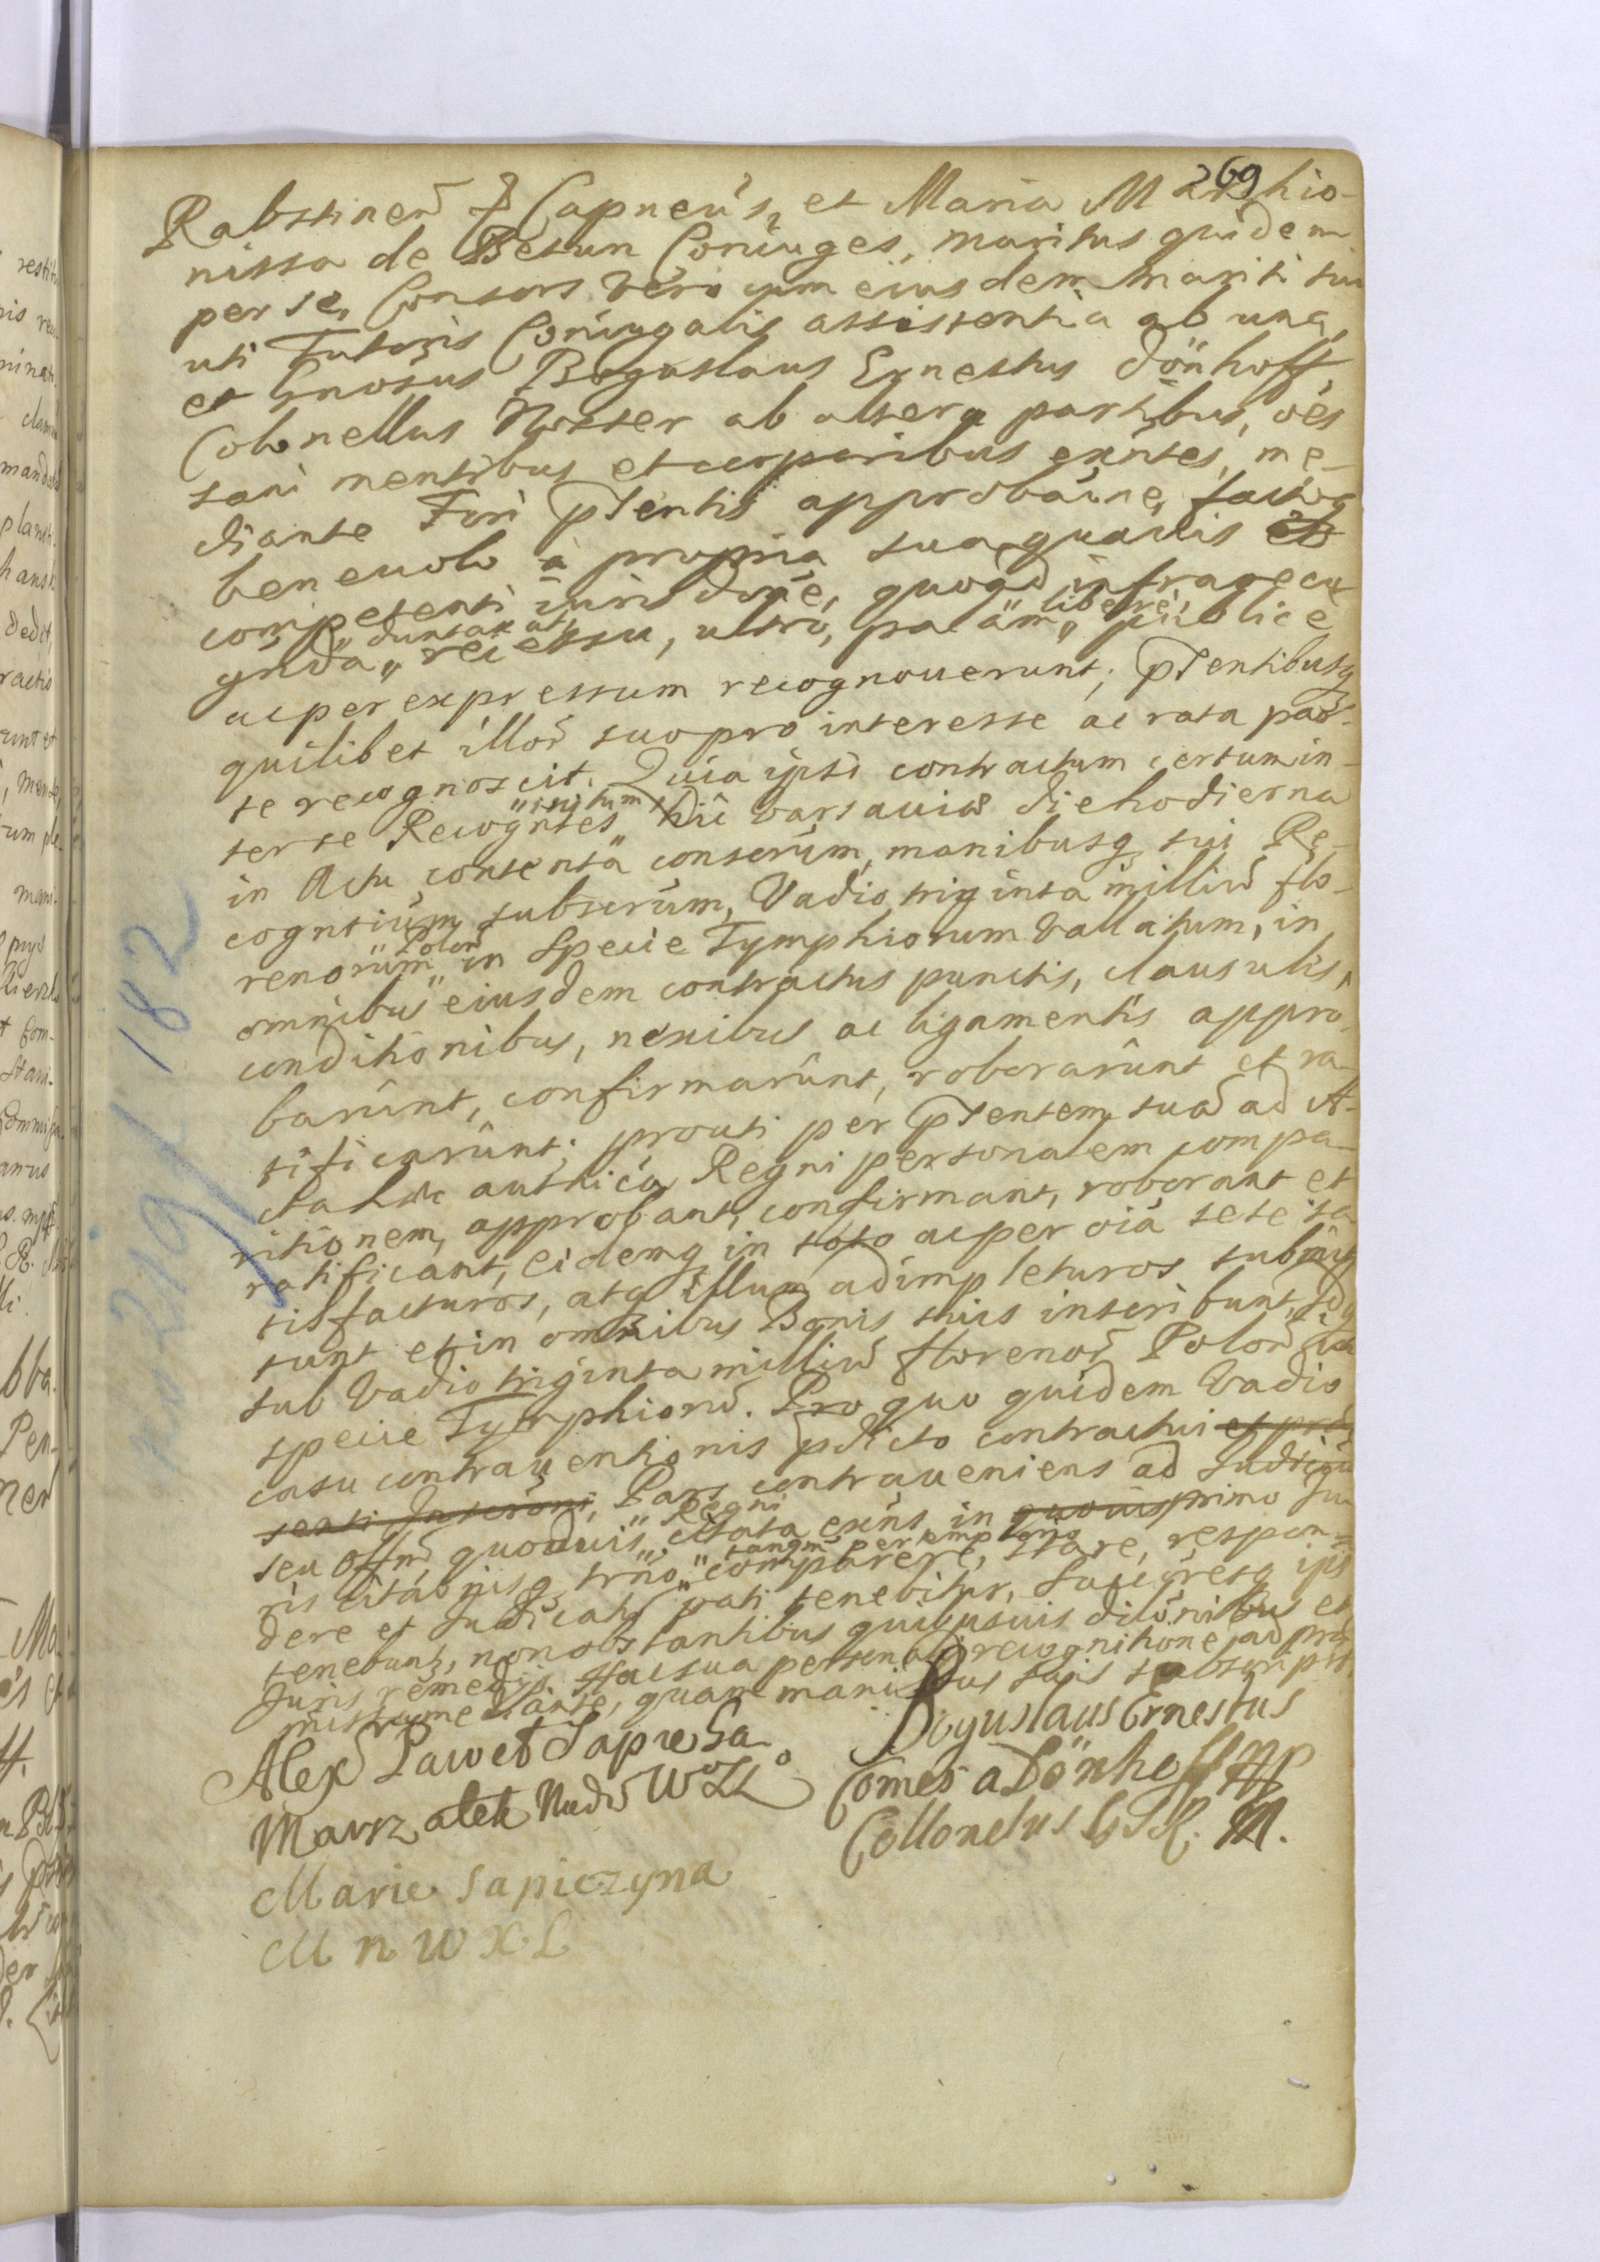 269
Rabstinen̄ & Capneús, et Maria Marchio-
nissa de Betun Coniuges, maritus quidem
per se, Consors vero cum eiusdem mariti sui
uti Tutoris Coniugalis assistentia ab una,
et Gnosus Boguslaus Ernestus Dönhoff
Colonellus Noster ab altera partibus, oēs
sani mentibus et corporibus exn̄tes, me-
diante Fori pn̄tis approbāne, factoq
beneuolo à propria sua quauis
competenti iurisdōne, quoad infra recu
gn̄da „duntaxat„ recessu, ultrò, palàm „liberè„ publicè
ac per expressum recognouerunt; pn̄tibusq
quilibet illor̄ suo pro interesse ac rata par-
te recognoscit. Quia ipsi contractum certum in-
ter se Recogn̄tes „initum„ hic Varsauiæ die hodierna
in Actu contentâ conserum̄, manibusq sui Re-
cogn̄tium subscrum̄, Vadio triginta milliū flo-
renorum „Polon̄„ in specie Tymphiorum vallatum, in
omnibus eiusdem contractus punctis, clausulis,
conditionibus, nexibus ac ligamentis appro-
barûnt, confirmarûnt, roborarûnt et ra-
tificarûnt; prouti per pn̄tem suā ad A-
cta hæc Regni personalem compa-
ritionem, approbant, confirmant, roborant et
ratificant, eidemq in toto ac per oīa sese sa-
tisfacturos, atq illum adimpleturos submit
tunt et in omnibus Bonis suis inscribunt,
sub Vadio triginta milliū florenor̄ Polon̄ in
specie Tymphiorū. Pro quo quidem Vadio
casu contrauentionis pdicto contractui et præ
senti Inscrōni, Pars contraueniens ad Iudiciū
seu Offm̄ quoduis „Regni„ citata exn̄s in quouis primo Iu-
ris citaōnisq trno „tanqm peremptorio„ comparere, stare, respon-
dere et Iudicatū pati tenebitur, Succresq ipsi
tenebunt̄, non obstantibus quibusuis dilōnibus et
Iuris remedijs. Hac sua personali recognitione, ad præ
mediante, quam manibus suis subscripser.
Alex̄ Paweł Sapieha
Marszałek Nadw WXLo
Marie Sapiezyna
M n W X L
Boguslaus Ernestus
Comes a Dönhoff mp
Collonelus G S R. M.